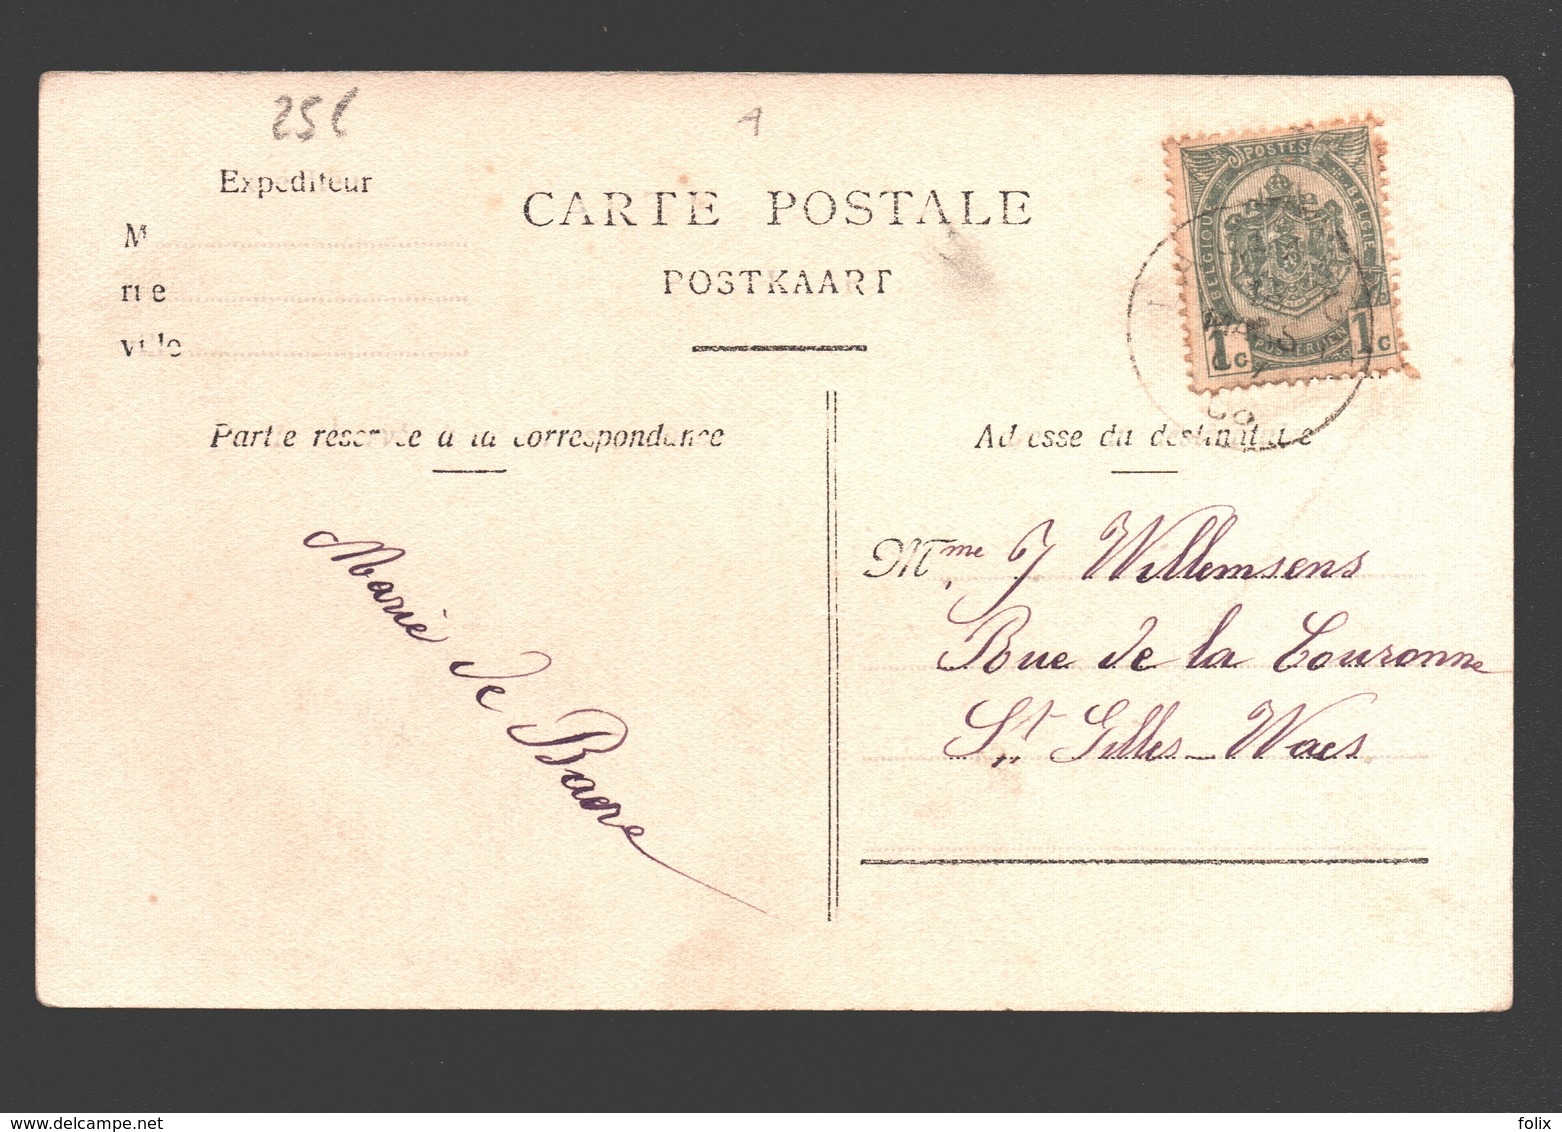 25
1
Expéditeur
CARTE POSTALE
M
rue
ville
POSTKAART
POSTES
BELGIQUE
BELGIE
POSTERIJEN
1 C
1 C
Partie réservée à la correspondance
Adresse du destinataire
Marie de Baere
Mme J Willemsens
Rue de la Couronne
St Gilles-Waes
folix